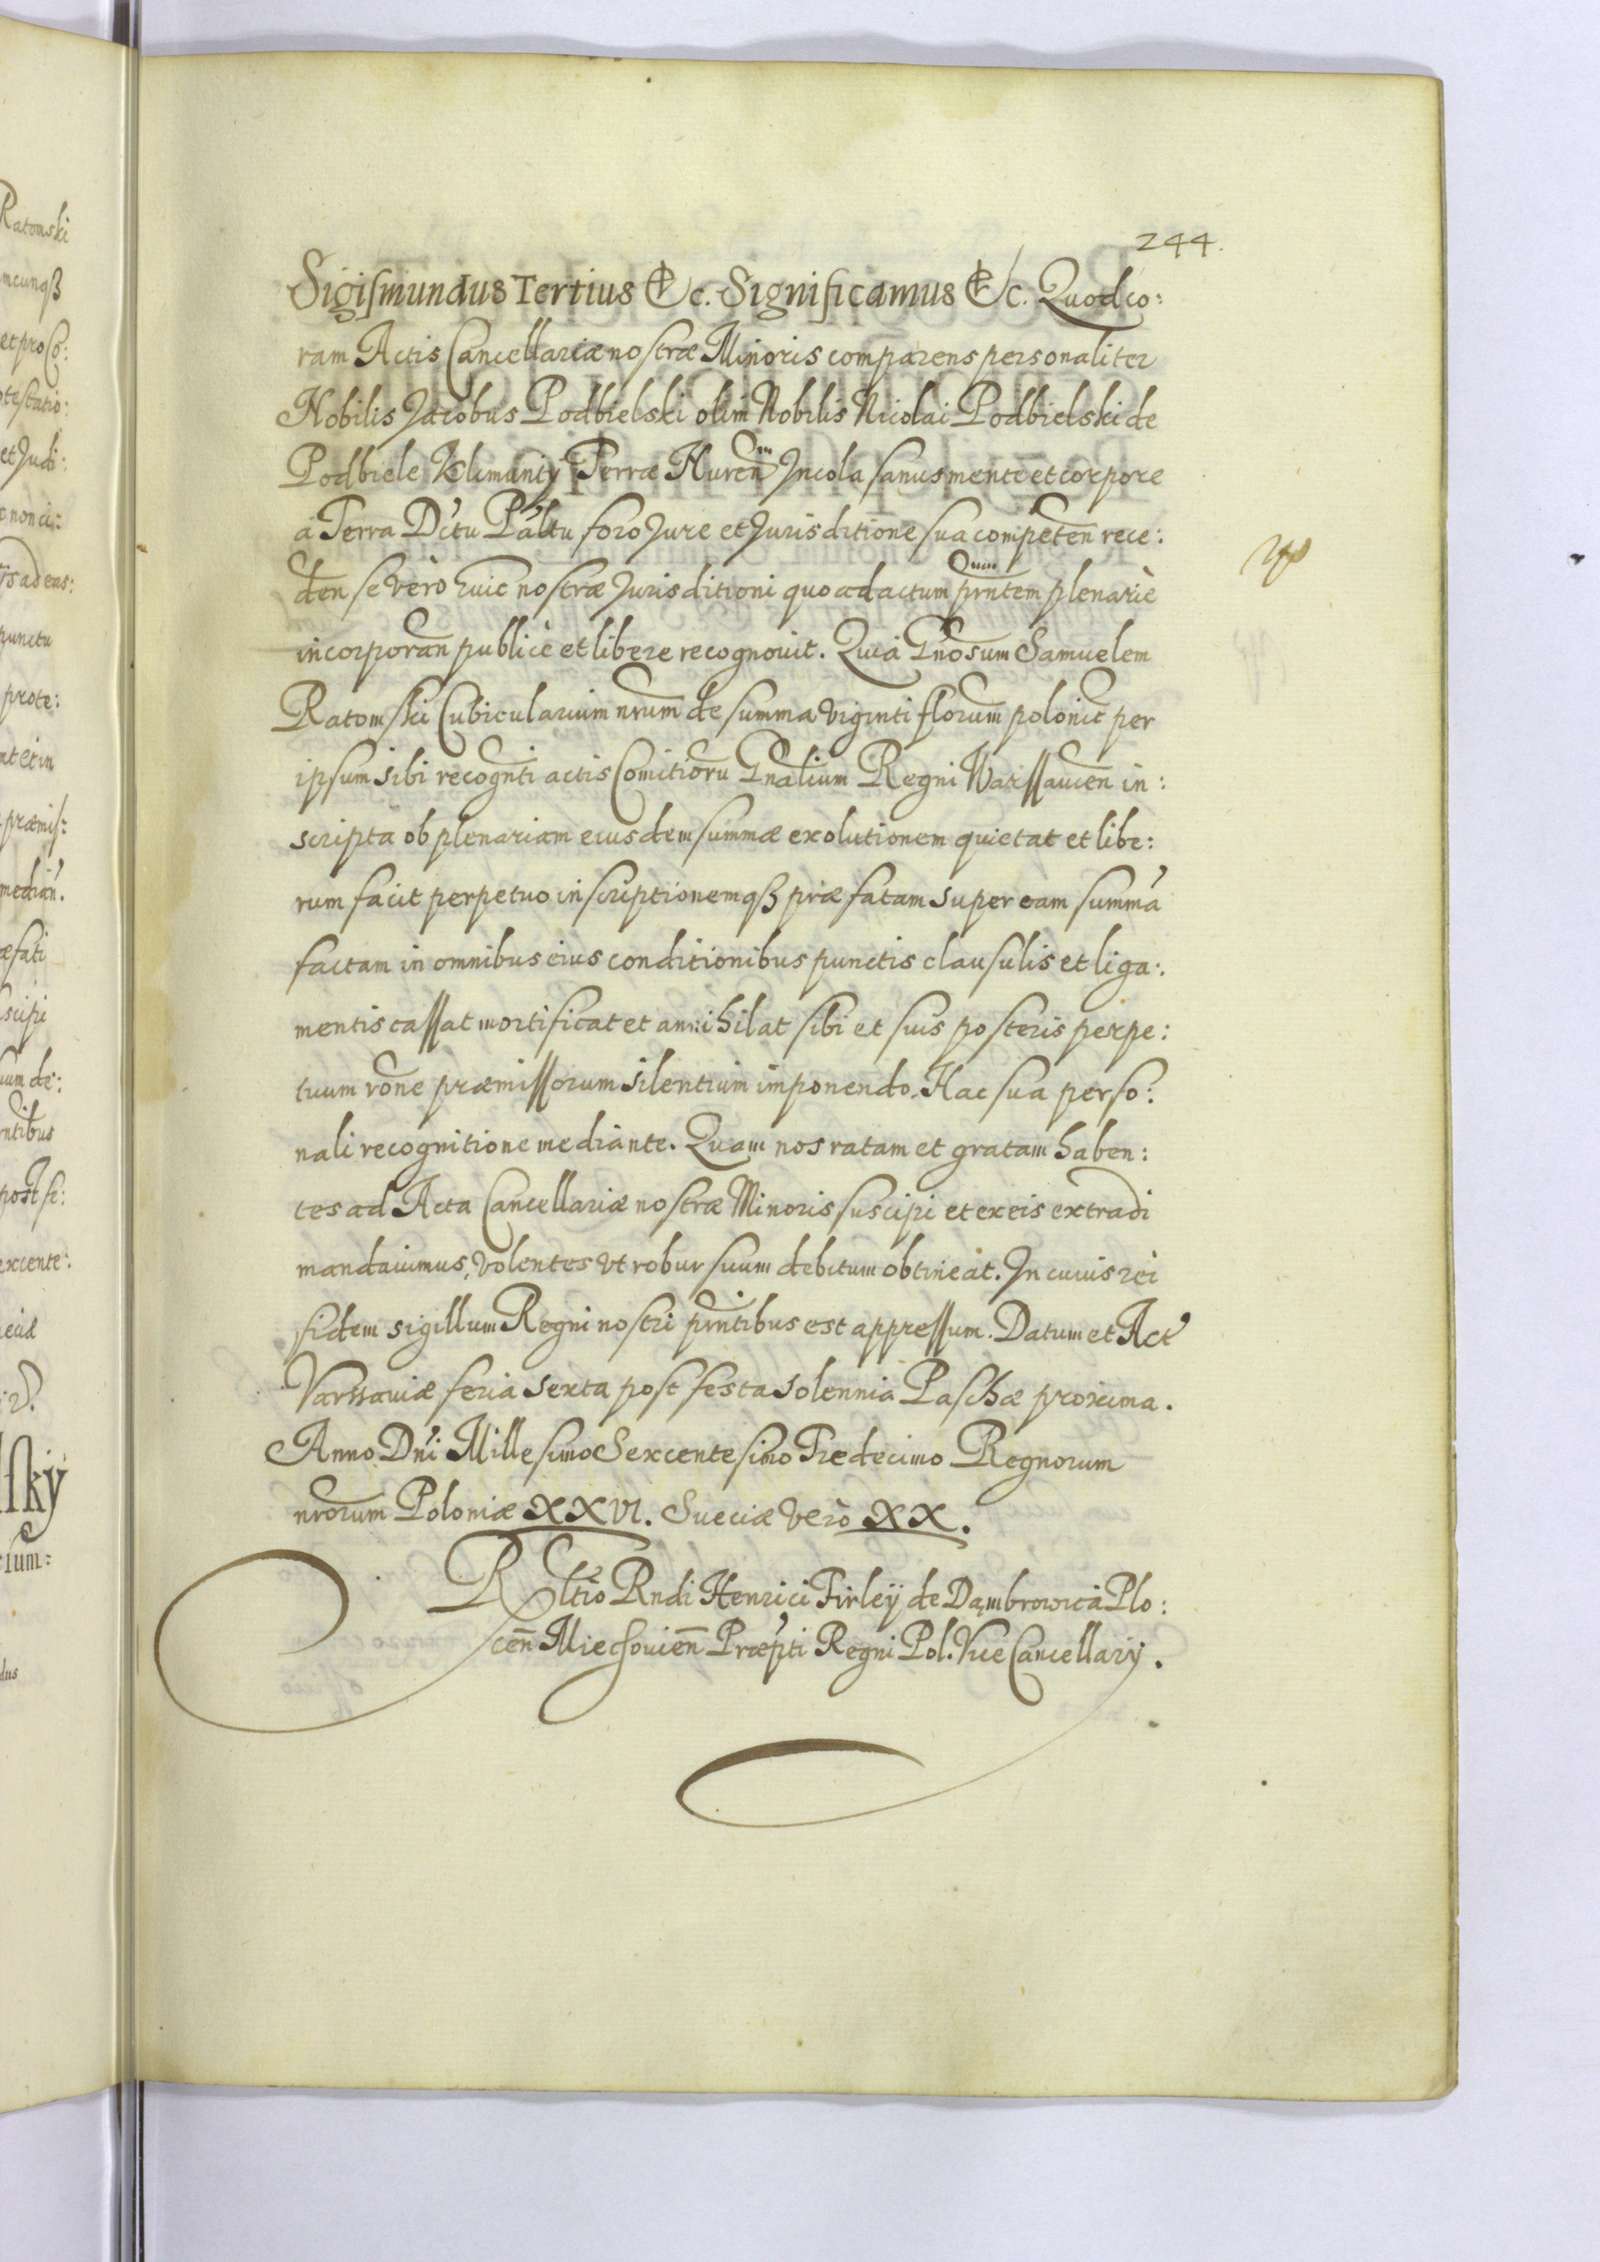 244.
Sigismundus Tertius Etc. Significamus Etc. Quod co:
ram Actis Cancellariæ nostræ Minoris comparens personaliter
Nobilis Jacobus Podbielski olim Nobilis Nicolai Podbielski de
Podbiele Klimunty Terræ Nuren Incola sanus mente et corpore
a Terra Dctu Paltu foro Jure et Jurisditione sua competen rece:
den se verò huic nostræ Jurisditioni quo ad actum prntem plenariè
incorporan publicè et libere recognovit. Quia Gnosum Samuelem
Ratomski Cubicularium nrum de summa viginti florum polonic per
ipsum sibi recognti actis Comitioru Gnalium Regni Warssavien in:
scripta ob plenariam eiusdem summæ exolutionem quietat et libe:
rum facit perpetuo inscriptionemqз præfatam super eam summa
factam in omnibus eius conditionibus punctis clausulis et liga:
mentis cassat mortificat et annihilat sibi et suis posteris perpe:
tuum rone præmissorum silentium imponendo. Hac sua perso:
nali recognitione mediante. Quam nos ratam et gratam haben:
tes ad Acta Cancellariæ nostræ Minoris suscipi et ex eis extradi
mandavimus, volentes vt robur suum debitum obtineat. In cuius rei
fidem sigillum Regni nostri prntibus est appressum. Datum et Act
Varssaviæ feria sexta post festa solennia Paschæ proxima.
Anno Dni Millesimo Sexcentesimo Tredecimo Regnorum
nrorum Poloniæ XXVI. Sueciæ verò XX.
Rltio Rndi Henrici Firleÿ de Dąmbrowica Plo:
cen Miechovien Præpti Regni Pol. Vice Cancellarij.